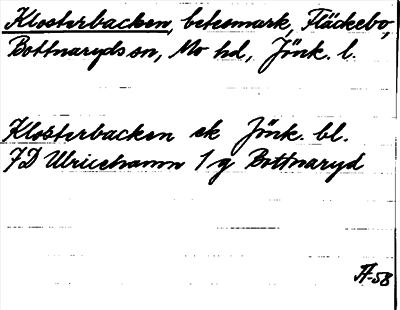 Klosterbacken, betesmark, Fläckebo,
Bottnaryds sn, Mo hd, Jönk. l.
Klosterbacken ek Jönk. bl.
7D Ulricehamn 1 g Bottnaryd
A-58